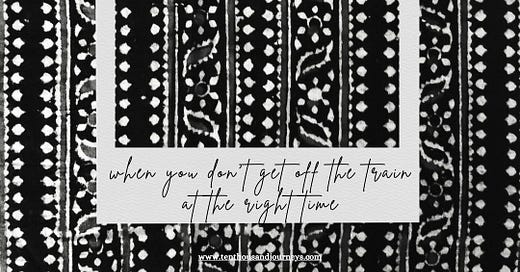 when you don't get off the train
at the right time
www.tenthousandjourneys.com